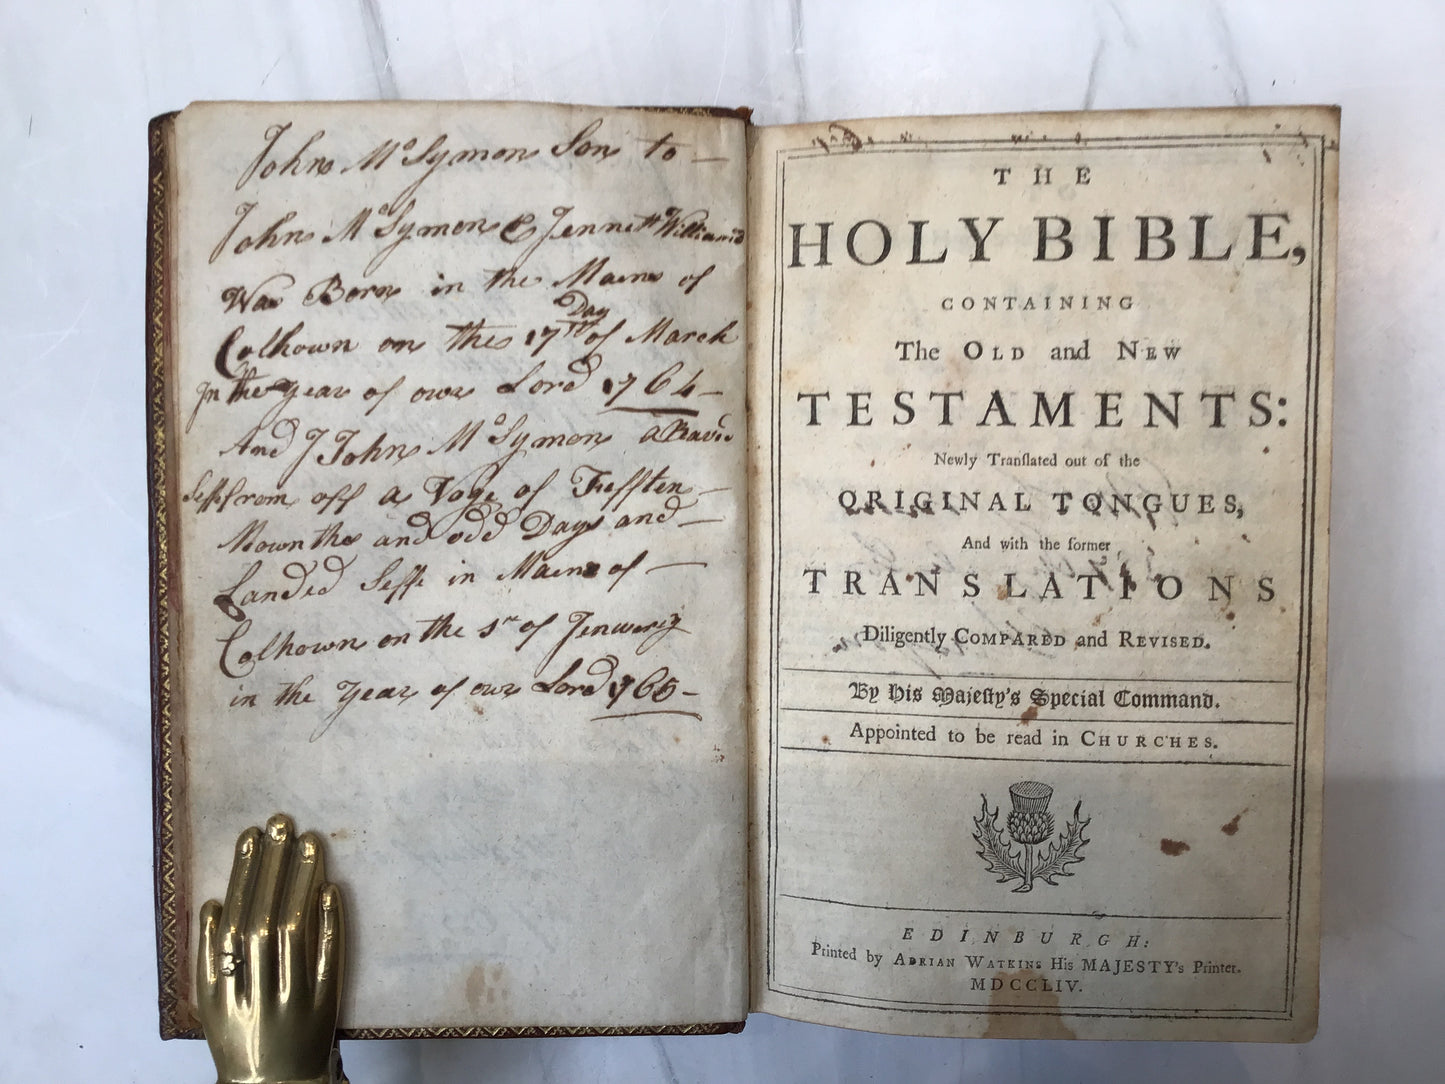 John McSymon Son to —
John McSymon & Jennett Williamid
Was Born in the Main of
Calhown on the 17th Day of March
In the year of our Lord 1764 —
And I John McSymon aRavid
Seffe from off a Voge of Fefften —
Mownths and odd Days and —
Landed Seffe in Main of —
Calhown on the 1st of Jenwery
in the year of our Lord 1765 —
THE
HOLY BIBLE,
CONTAINING
The OLD and NEW
TESTAMENTS:
Newly Tranſlated out of the
ORIGINAL TONGUES,
And with the former
TRANSLATIONS
Diligently COMPARED and REVISED.
By His Majeſty's Special Command.
Appointed to be read in CHURCHES.
EDINBURGH:
Printed by ADRIAN WATKINS His MAJESTY's Printer.
MDCCLIV.